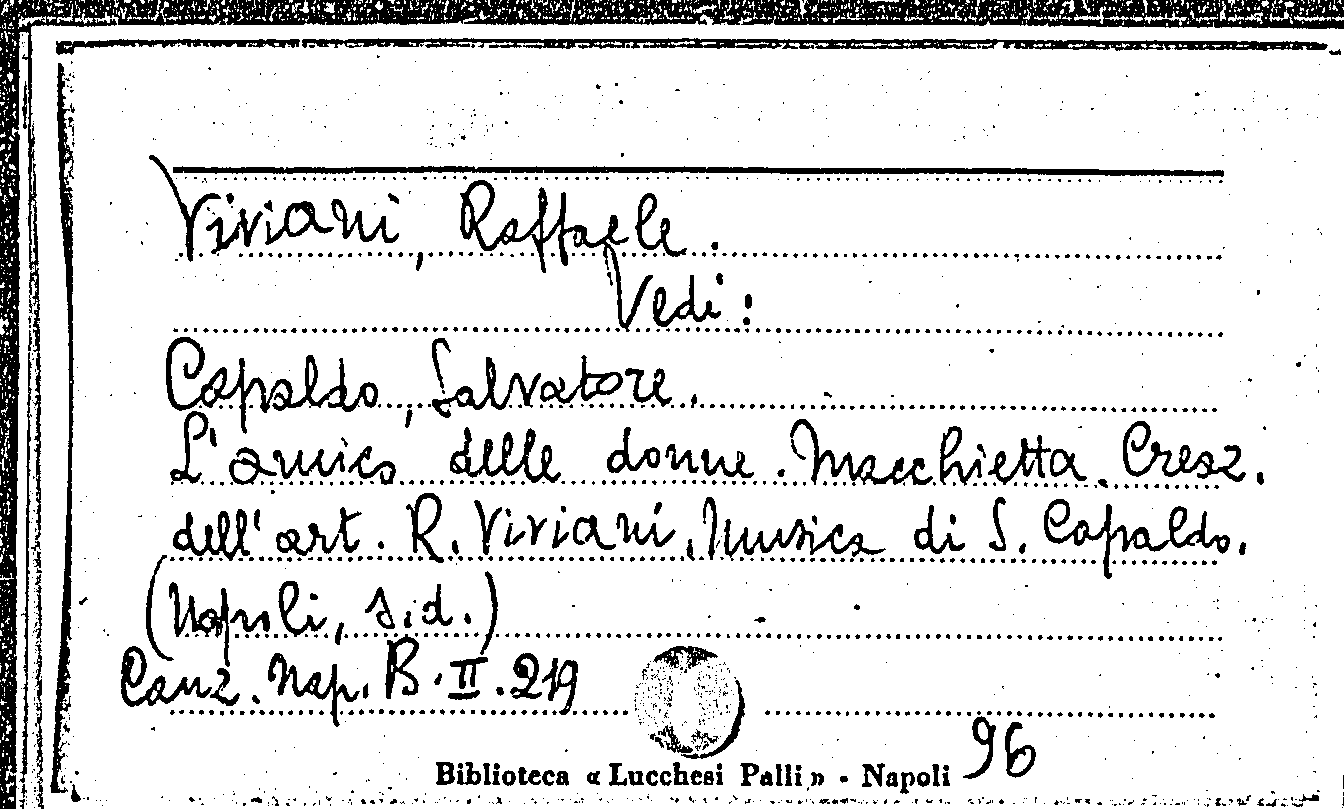 Viviani, Raffaele.
Vedi:
Capaldo, Salvatore.
L'amico delle donne. Macchietta. Creaz.
dell'art. R. Viviani, Musica di S. Capaldo.
(Napoli, s.d.)
Canz. Nap. B.II.219
96
Biblioteca « Lucchesi Palli » - Napoli